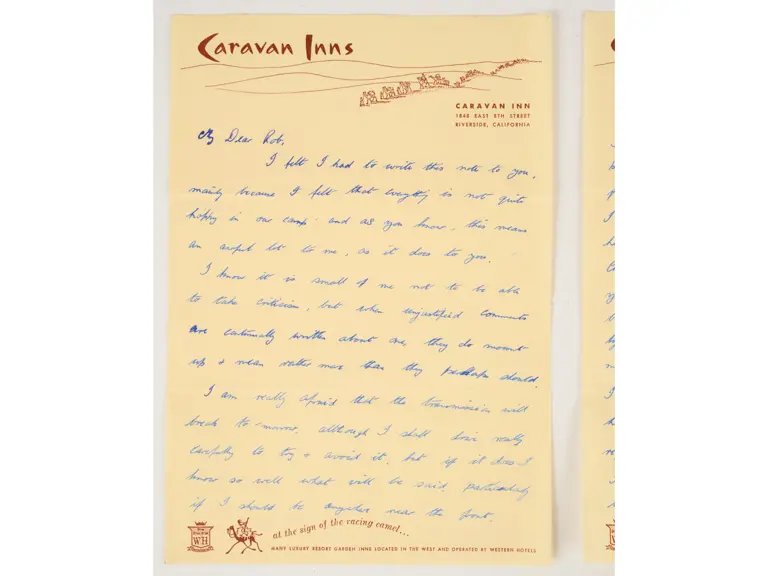 Caravan Inns
CARAVAN INN
1848 EAST 8TH STREET
RIVERSIDE, CALIFORNIA
My Dear Rob,
I felt I had to write this note to you,
mainly because I felt that everything is not quite
happy in our camp and as you know, this means
an awful lot to me, as it does to you.
I know it is small of me not to be able
to take criticism, but when unjustified comments
are continually written about one, they do mount
up & mean rather more than they perhaps should.
I am really afraid that the transmission will
break to-morrow, although I shall drive really
carefully to try & avoid it, but if it does I
know so well what will be said, particularly
if I should be anywhere near the front.
WH
at the sign of the racing camel...
MANY LUXURY RESORT GARDEN INNS LOCATED IN THE WEST AND OPERATED BY WESTERN HOTELS